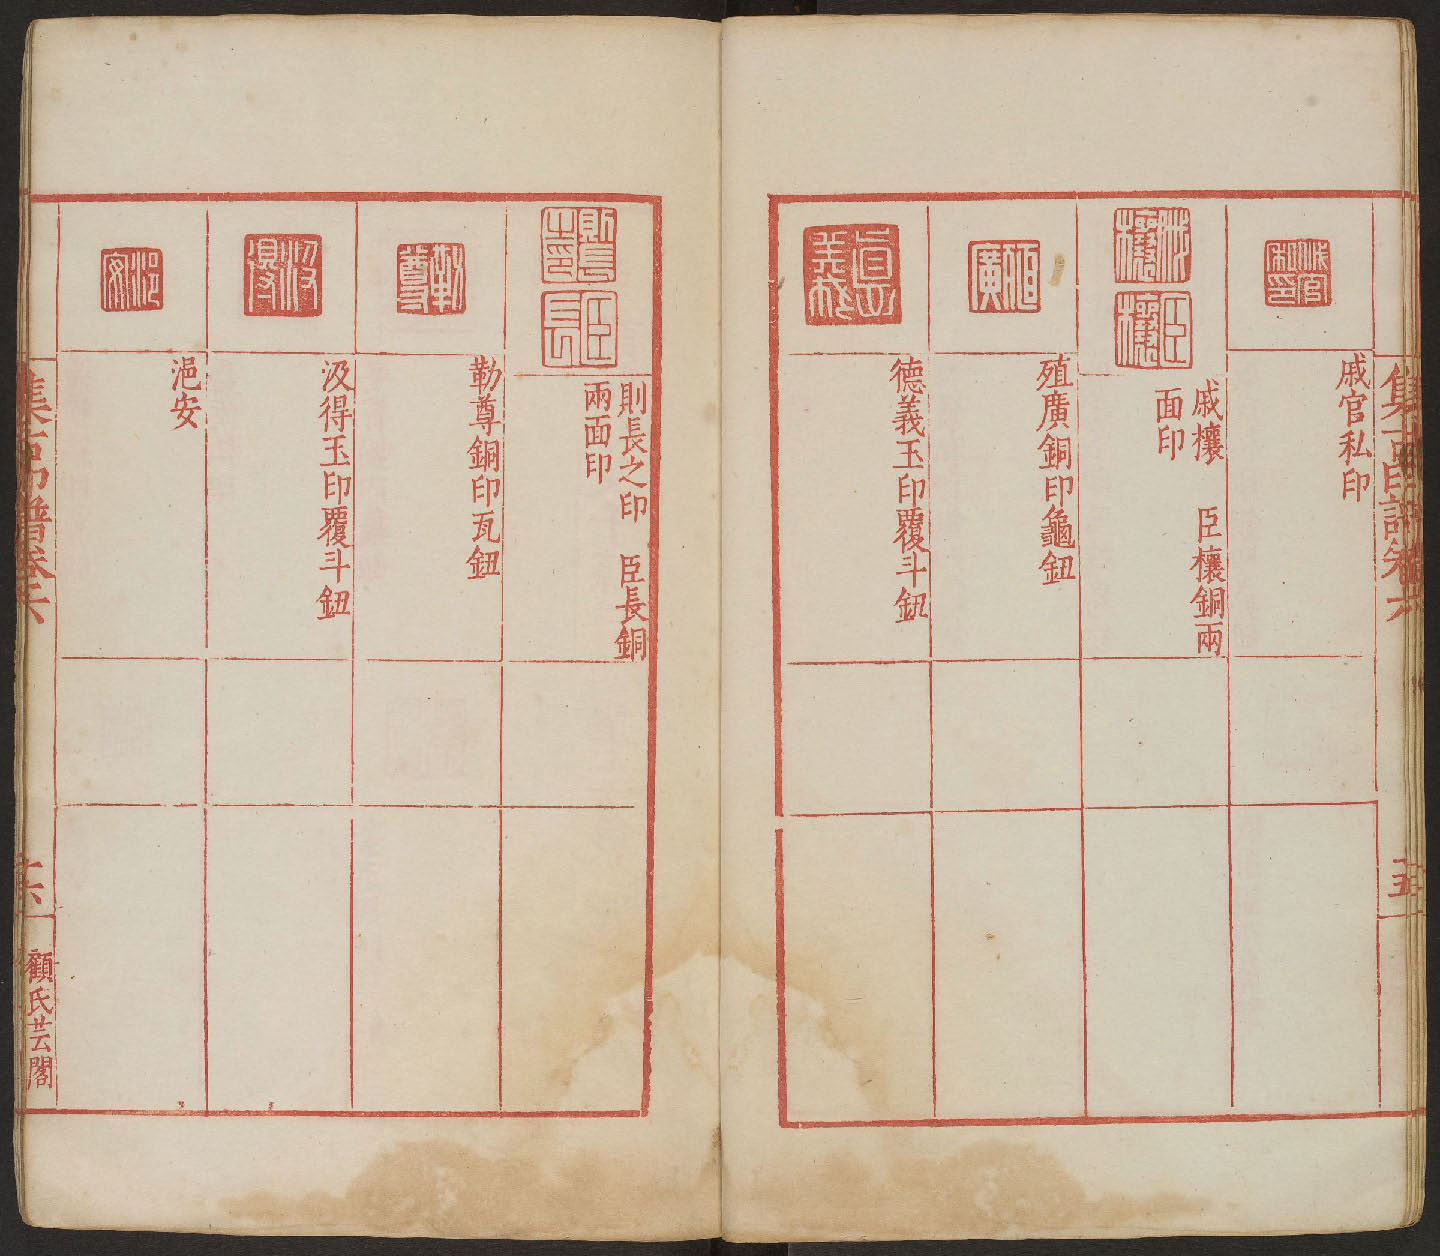 集古印譜卷六
五
戚官私印
戚欀　臣欀銅兩
面印
殖廣銅印龜鈕
德義玉印覆斗鈕
則長之印　臣長銅
兩面印
勒尊銅印瓦鈕
汲得玉印覆斗鈕
浥安
集古印譜卷六
六
顧氏芸閣